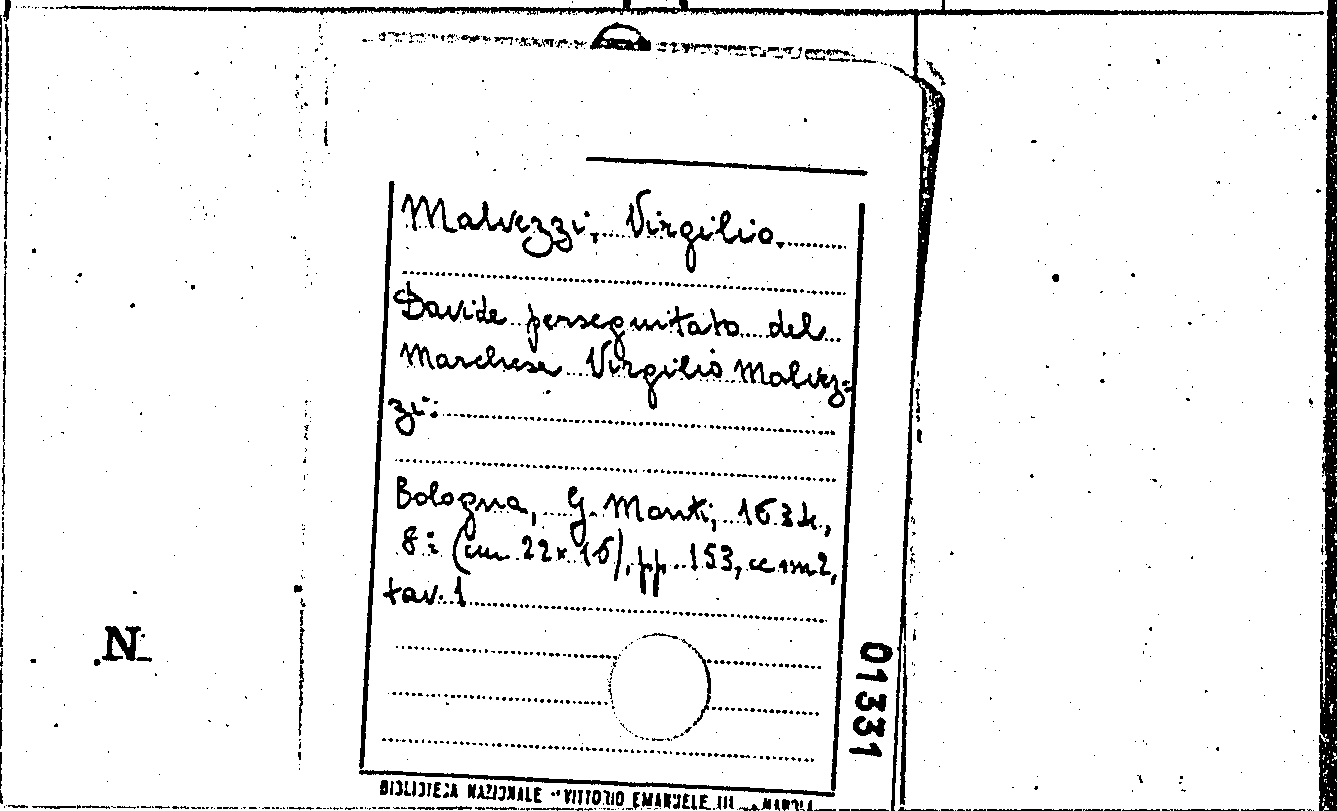 Malvezzi, Virgilio.
Davide perseguitato del
Marchese Virgilio Malvez=
zi:
Bologna, G. Monti, 1634,
8: (cm 22x16), pp. 153, cc nn 2,
tav. 1
N
01331
BIBLIOTECA NAZIONALE "VITTORIO EMANUELE III" NAPOLI